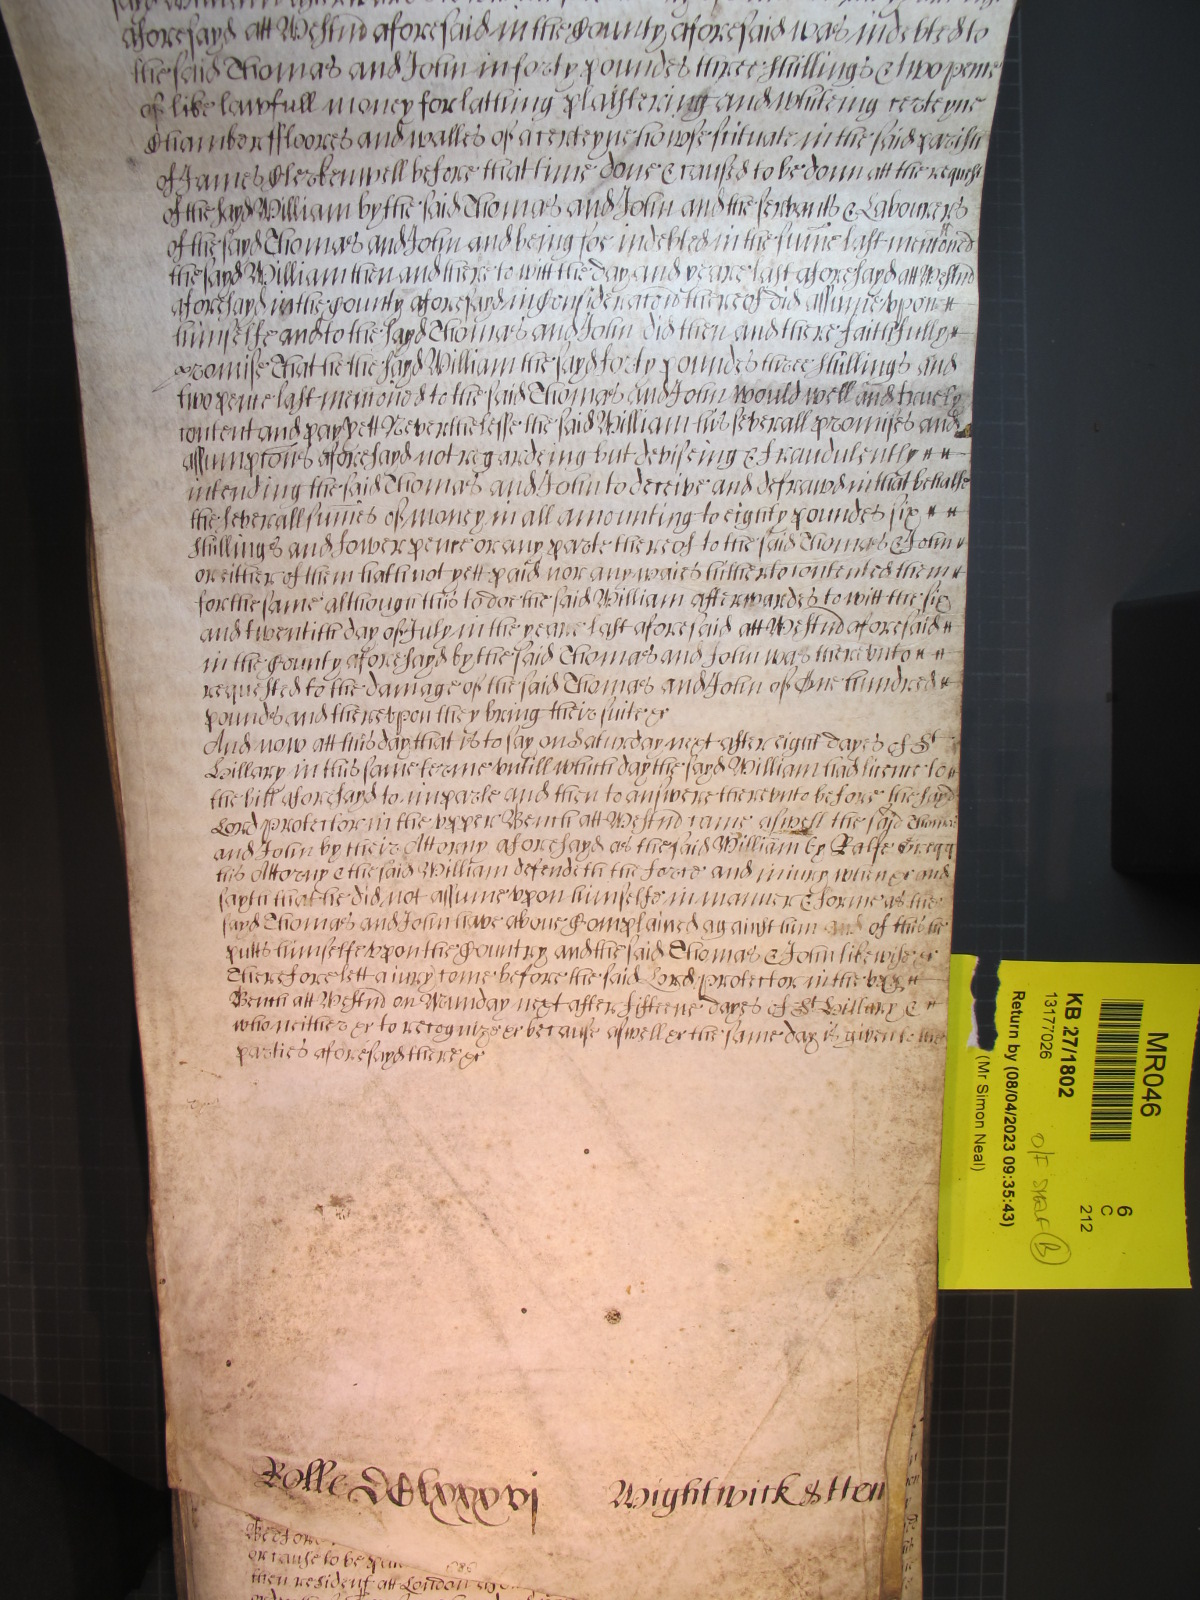 aforesayd att Westmr aforesaid in the County aforesaid was indebted to
the said Thomas and John in forty poundes three shillings & two pence
of like lawfull money for lathing plaistering and whiteing certeyne
Chambers ffloores and walles of a certeyne howse scituate in the said parish
of James Clerkenwell before that time done & caused to be donn att the request
of the sayd William by the said Thomas and John and the servants & Labourers
of the sayd Thomas and John and being soe indebted in the sume last mencioned
the sayd William then and there to witt the day and yeare last aforesayd att Westmr
aforesayd in the County aforesayd in Consideracon thereof did assume vpon
himselfe and to the sayd Thomas and John did then and there faithfully
promise That he the sayd William the sayd forty poundes three shillings and
two pence last mencioned to the said Thomas and John would well and truely
content and pay Yett Neverthelesse the said William his severall promises and
assumptons aforesayd not regardeing but deviseing & fraudulently
intending the said Thomas and John to deceive and defrawd in that behalfe
the severall sumes of Money in all amounting to eighty poundes six
shillings and fower pence or any parte thereof to the said Thomas & John
or either of them hath not yett paid nor any waies hitherto contented them
for the same although this to doe the said William afterwardes to witt the six
and twentith day of July in the yeare last aforesaid att Westmr aforesaid
in the County aforesayd by the said Thomas and John was therevnto
requested to the damage of the said Thomas and John of One hundred
pounds and therevpon they bring their suite &c
And now att this day that is to say on Saturday next after eight dayes of St
Hillary in this same terme vntill which day the sayd William had licence to
the bill aforesayd to imparle and then to answere therevnto before the sayd
Lord Protector in the vpper Bench att Westmr came aswell the said Thomas
and John by their Attorny aforesayd as the said William by Ralfe Gregg
his Attorny & the said William defendeth the force and iniury when &c and
sayth that he did not assume vpon himselfe in manner & forme as the
sayd Thomas and John have above Complained against him and of this he
putts himselfe vpon the Country and the said Thomas & John likewise &c
Therefore lett a iury come before the said Lord Protector in the vpp
Bench att Westmr on Munday next after fifteene dayes of St Hillary &
who neither &c to recognize &c because aswell &c the same day is given to the
parties aforesayd there &c
Rolle DClxxxvj Wightwick & tten
Before
or cause to be
then resident att London
MR046
6
C
212
KB 27/1802
13177026
O/F SHELF B
Return by (08/04/2023 09:35:43)
(Mr Simon Neal)